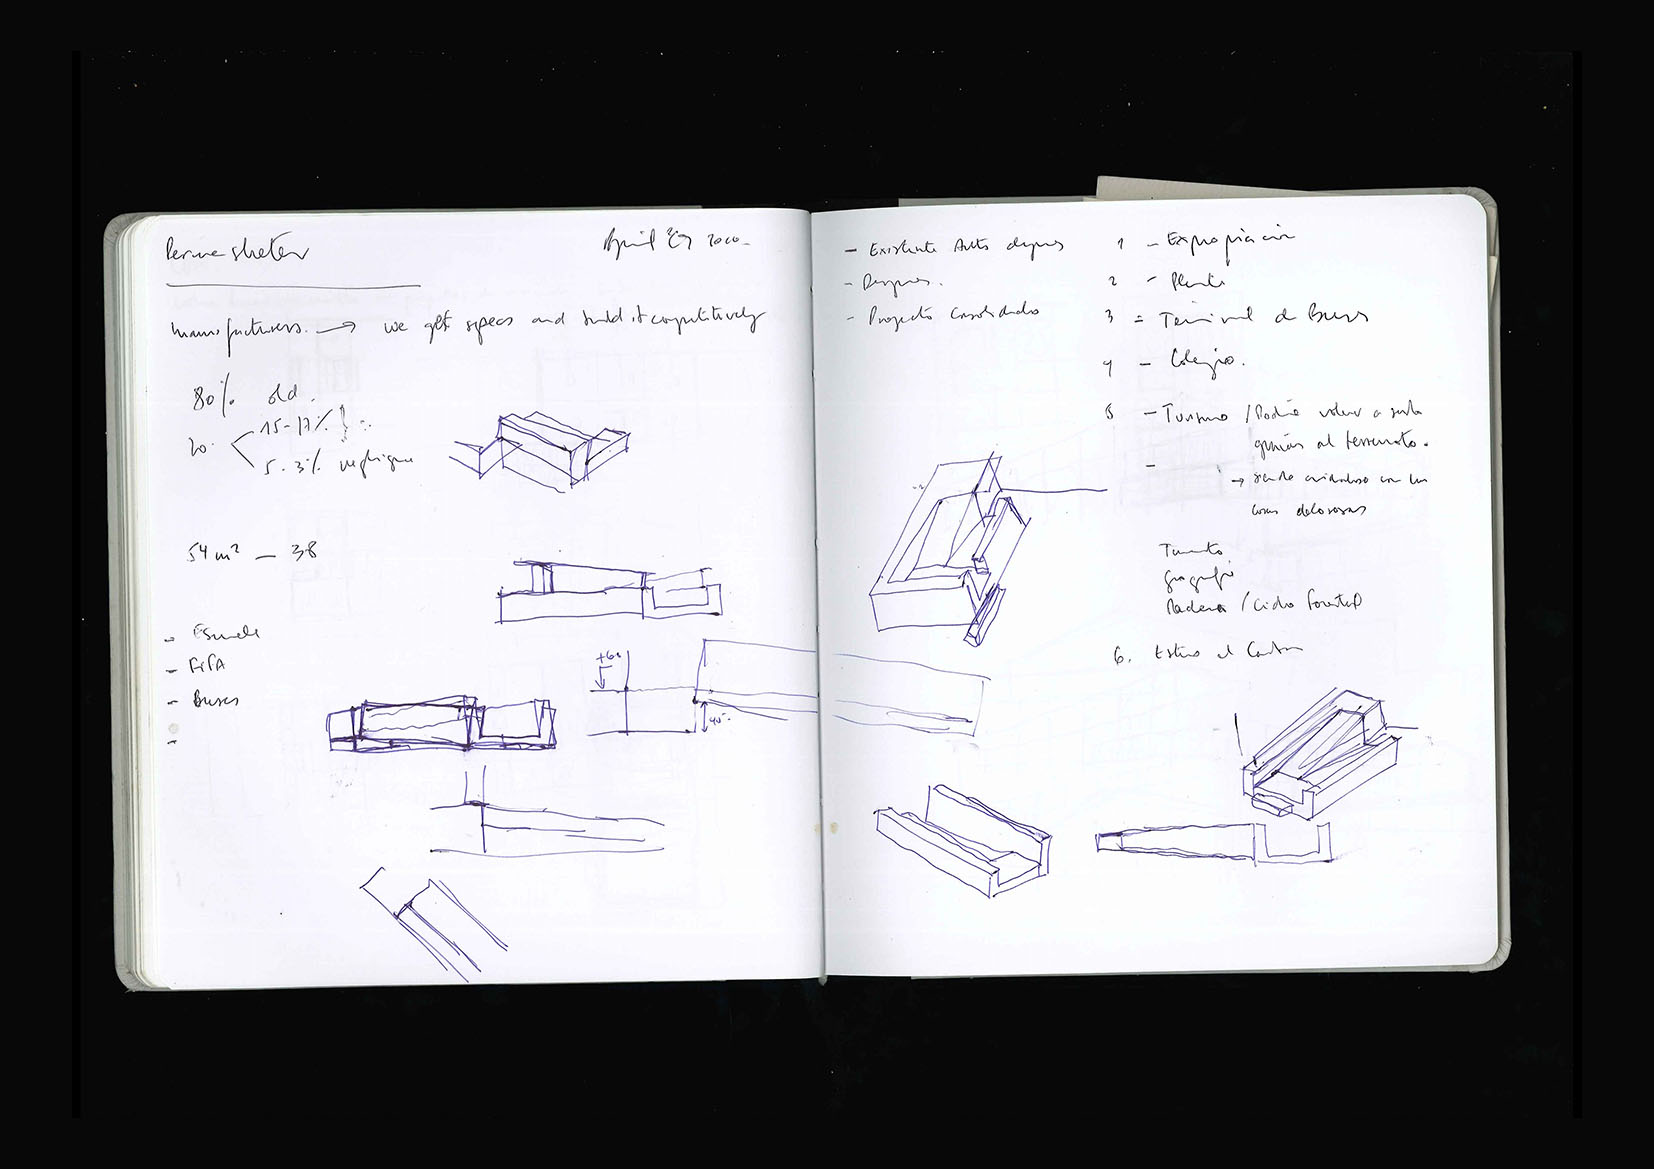 Permashelter
April 29 2010-
manufacturers. → we get specs and build it competitively
80% old.
20. 15-17%
5-3% negligue
54 m² — 38
- Escuela
- FIFA
- Buses
-
+60
40-
- Existente Antes despues
- Despues.
- Proyecto Consolidado
1 - Expropiacion
2 - Planta
3 = Terminal de Buses
4 - Colegio.
5 - Turismo / Podria volver a
gracias al terremoto.
-
→ siendo cuidadoso con las
cosas dolorosas
Geografia
Madera / Ciclo forestal
6.